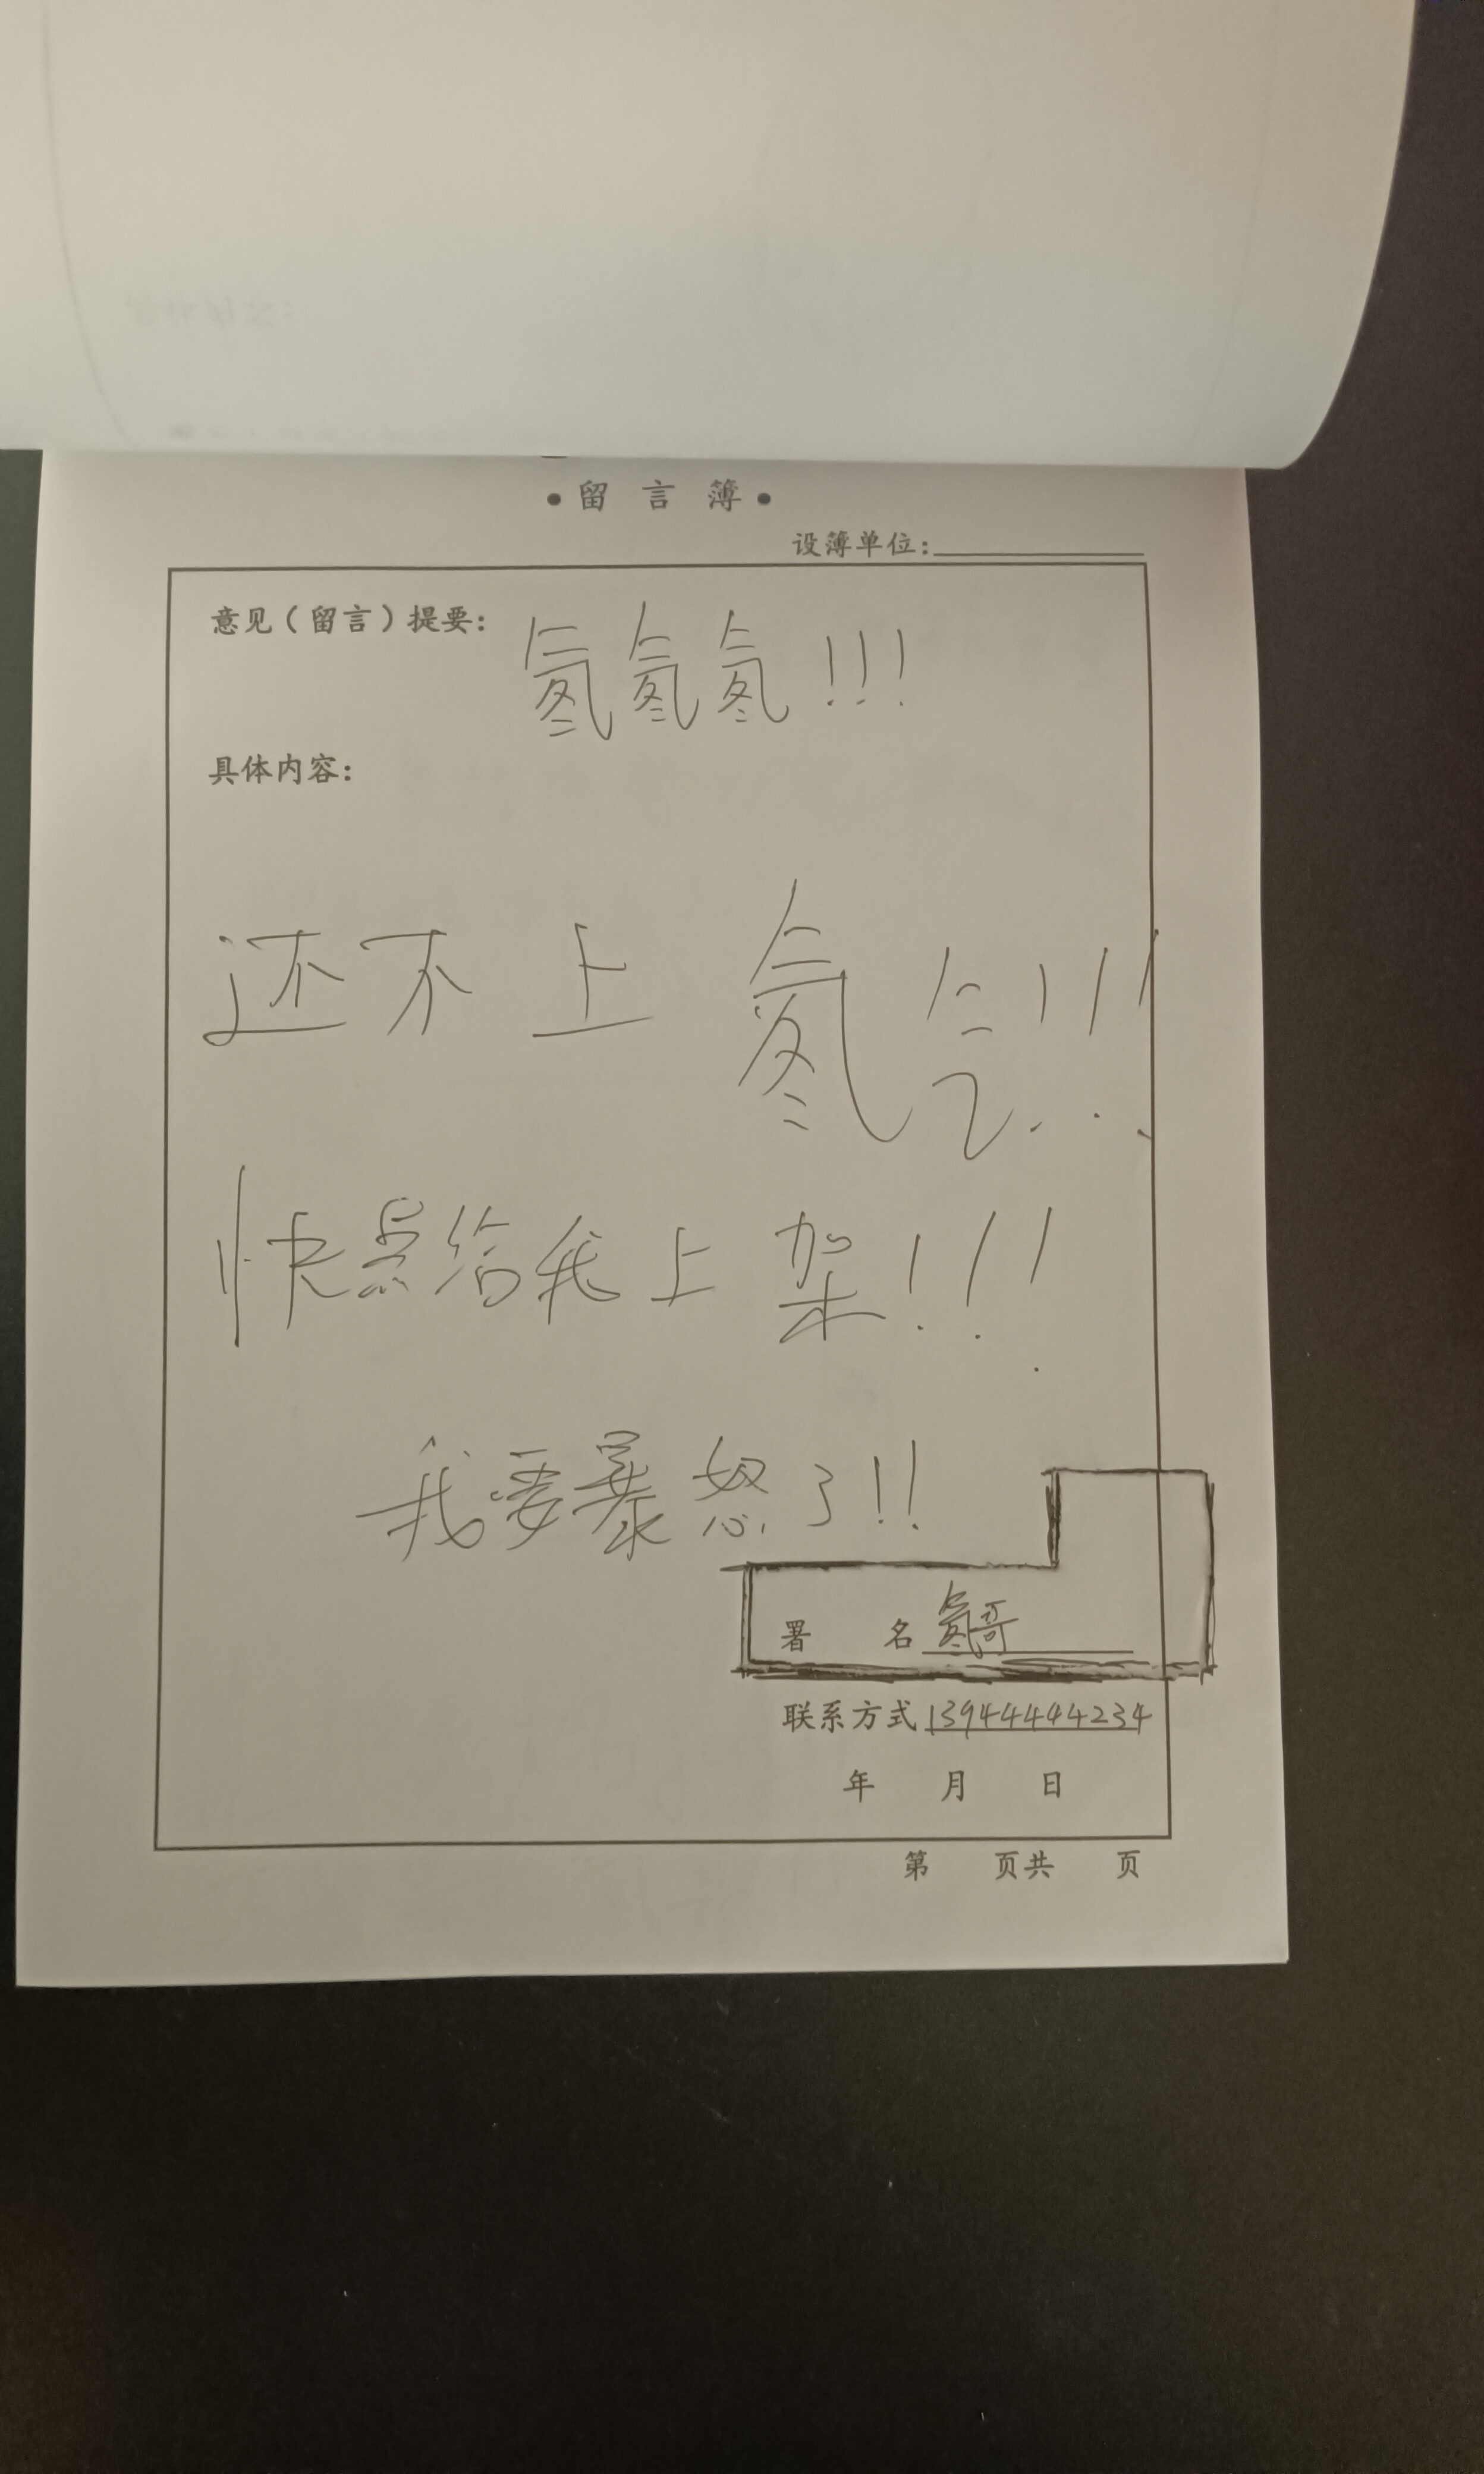 •留言簿•
设簿单位:
意见(留言)提要: 氦氦氦!!!
具体内容:
还不上氦气!!!
快点给我上架!!!
我要暴怒了!!
署名 氦哥
联系方式 13944444234
年 月 日
第 页共 页